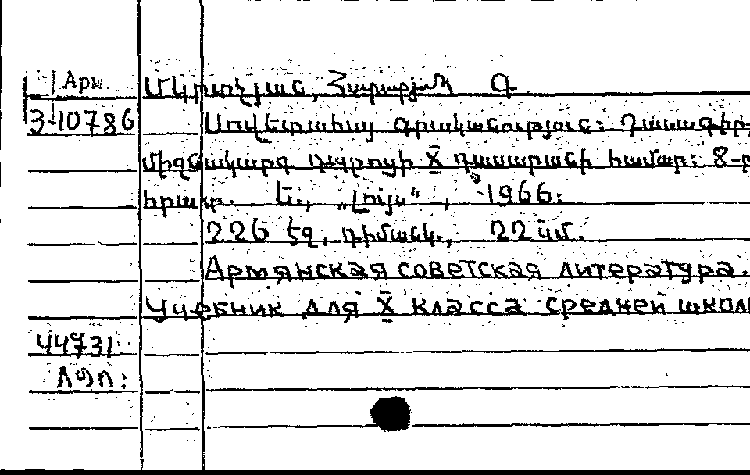 Арм. Մկրտչյան, Հարություն Գ
3-10786 Սովետահայ գրականություն: Դասագիրք
միջնակարգ դպրոցի X դասարանի համար: 8-րդ
հրատ. Ե., „Լույս", 1966.
226 էջ, դիմանկ., 22 սմ.
Армянская советская литература.
Учебник для X класса средней школ
44731